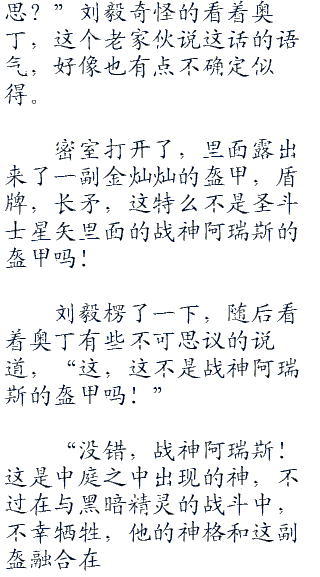 思？”刘毅奇怪的看着奥
丁，这个老家伙说这话的语
气，好像也有点不确定似
得。
密室打开了，里面露出
来了一副金灿灿的盔甲，盾
牌，长矛，这特么不是圣斗
士星矢里面的战神阿瑞斯的
盔甲吗！
刘毅楞了一下，随后看
着奥丁有些不可思议的说
道，“这，这不是战神阿瑞
斯的盔甲吗！”
“没错，战神阿瑞斯！
这是中庭之中出现的神，不
过在与黑暗精灵的战斗中，
不幸牺牲，他的神格和这副
盔融合在